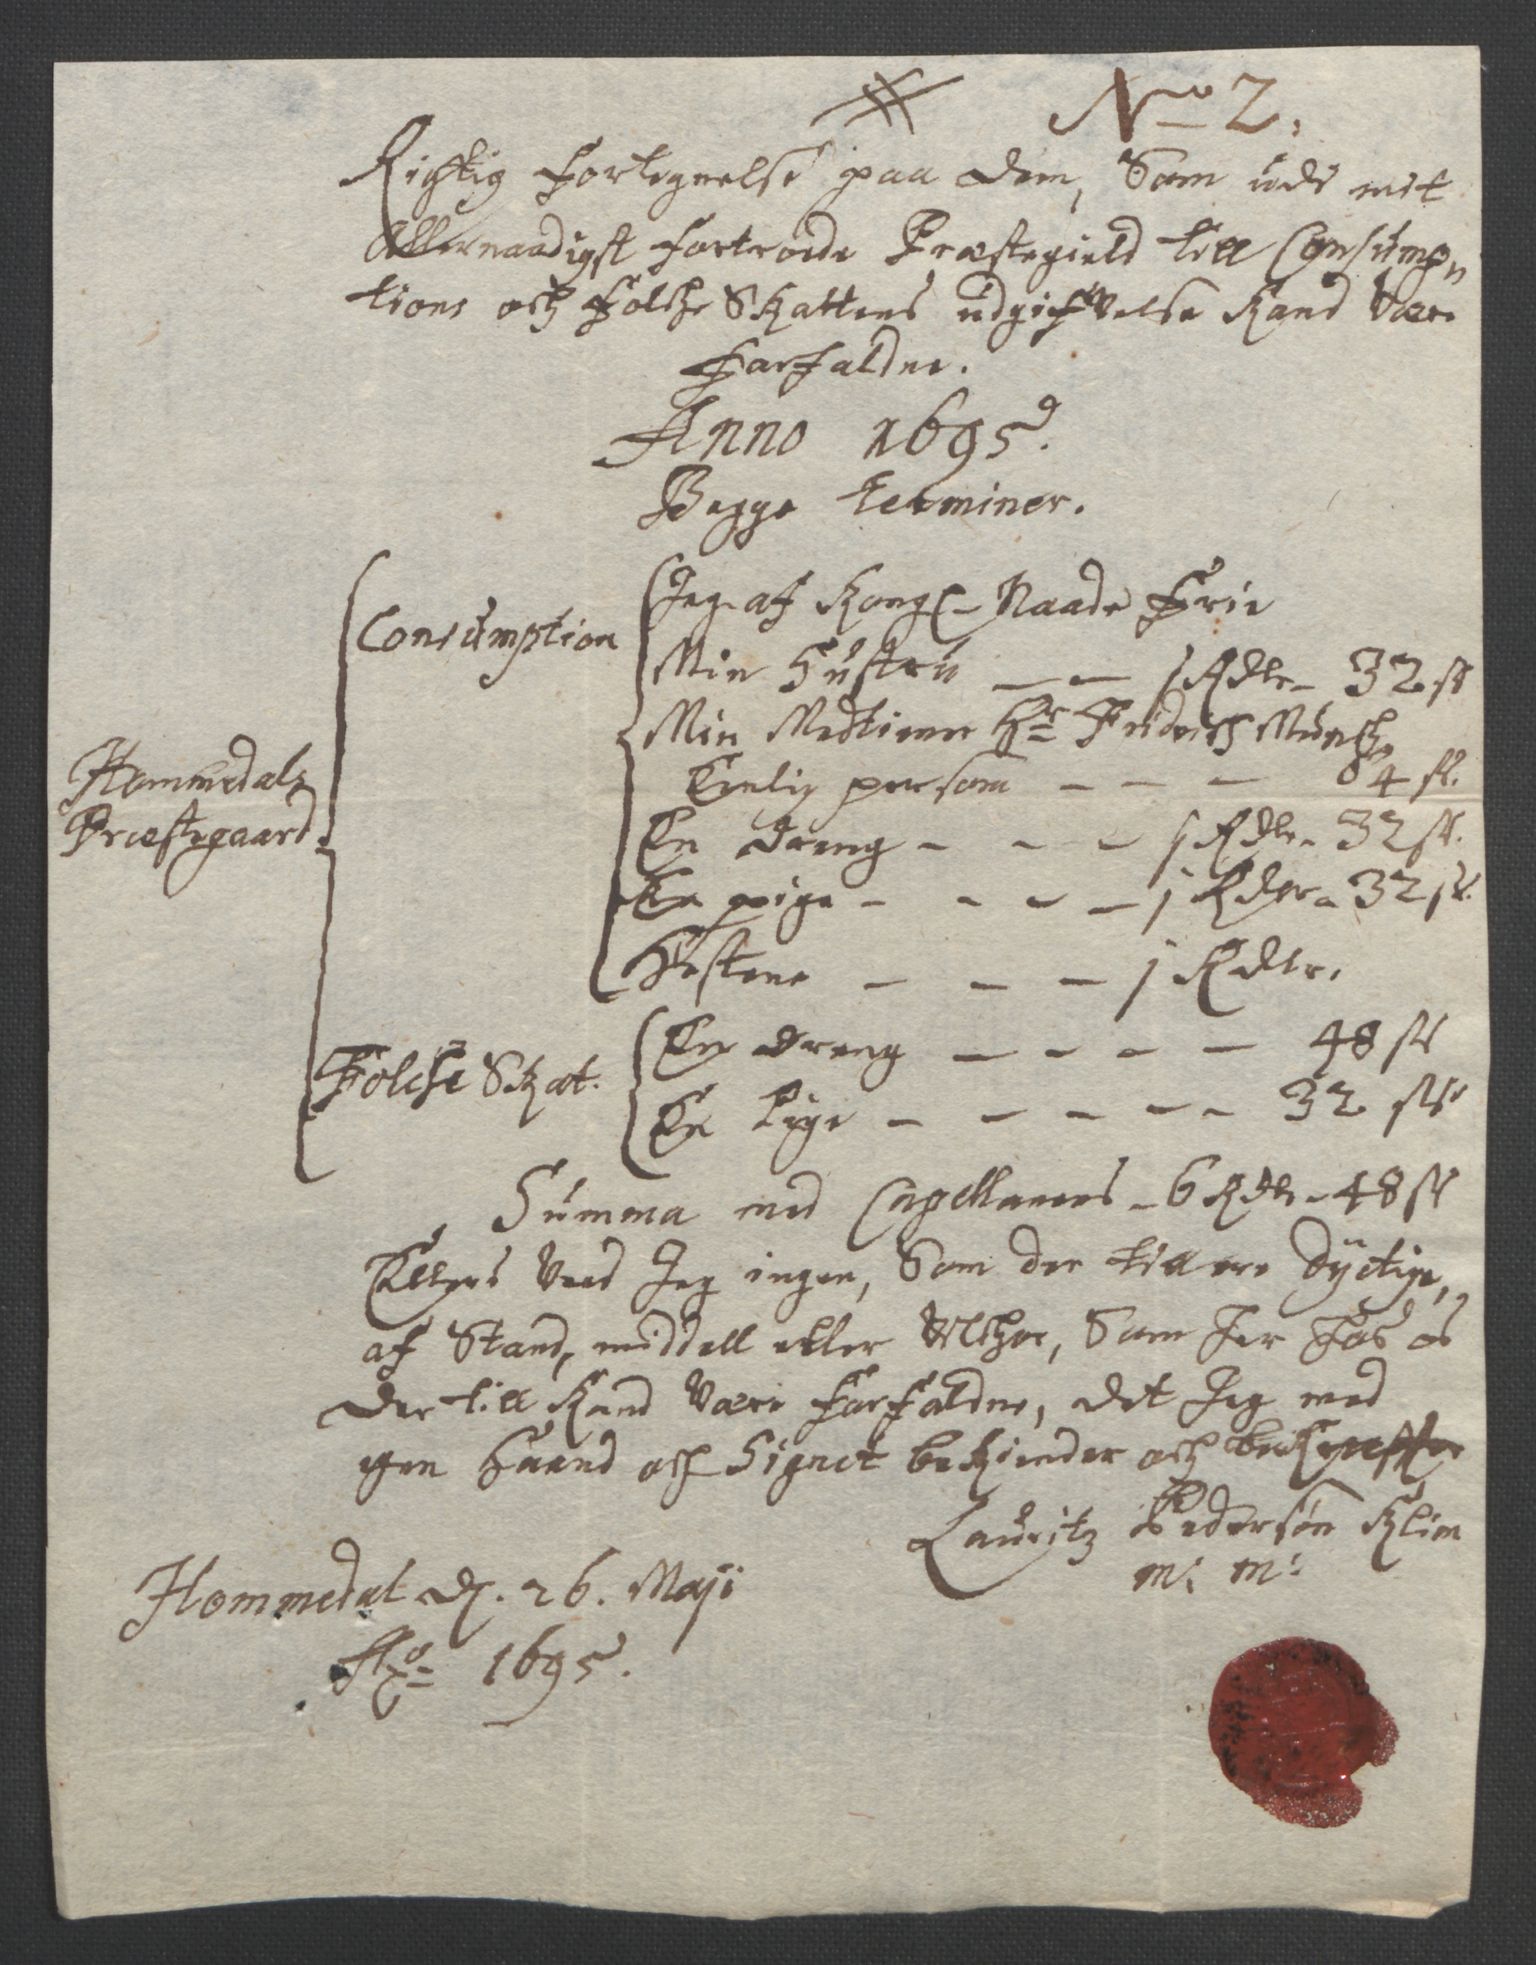 No 2.
Richtig Fortegnelse paa dem, Som udi mit
Allernaadigst fortroede Præstegield till Consump,,
tions och Folche Skattens udgifvelse kand være
forfaldne.
Anno 1695.
Begge terminer.
Hommedals
Præstegaard
Consumption
Jeg af Kongl. Naade Frie
Min Hustru - - 1 Rdlr - 32 sk
Min Medtiener Hr Friderich Munch,
Enlig person - - - 64 sk.
En dreng - - - 1 Rdlr - 32 sk.
En pige - - - - 1 Rdlr - 32 sk.
Hestene - - - 1 Rdlr.
Folche Skat.
En dreng - - - - 48 sk
En Pige - - - - - 32 sk
Summa med Capellanens - 6 Rdlr - 48 sk
Ellers veed Jeg ingen, Som der till ere dyctige,
af Stand, middell eller Vilchor, Som her hos os
der till kand være forfaldne, det Jeg med
egen haand och Signet bekiender och bekreffter
Lauritz Pedersøn Klim
m: m:
Hommedal d. 26. Maji
Ao 1695.